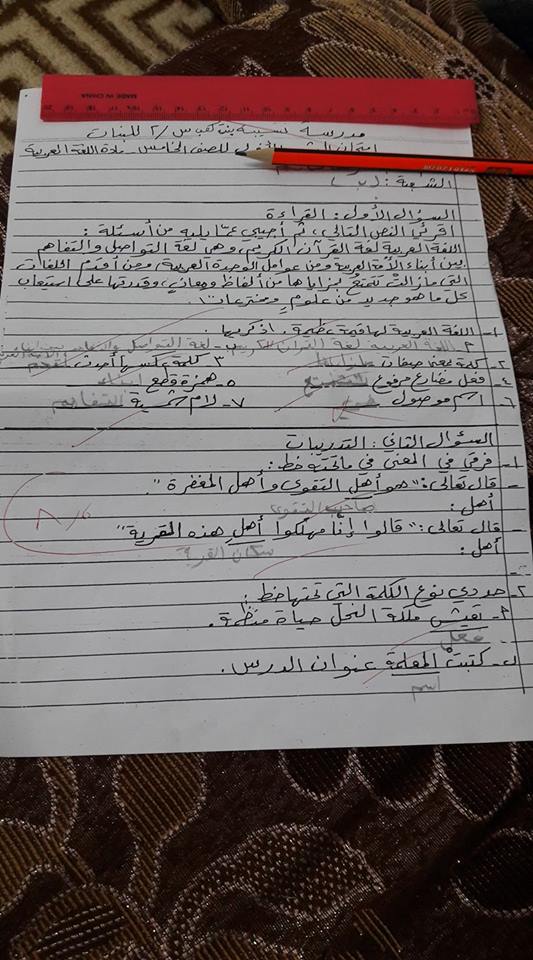 MADE IN CHINA
مدرسة نسيبة بنت كعب س/٢ للبنات
امتحان الشهر الأول للصف الخامس - مادة اللغة العربية
الشعبة: (ب)
السؤال الأول: القراءة
اقرئي النص التالي، ثم أجيبي عمّا يليه من أسئلة:
اللغة العربية لغة القرآن الكريم، وهي لغة التواصل والتفاهم
بين أبناء الأمة العربية ومن عوامل الوحدة العربية، ومن أقدم اللغات
التي مازالت تتمتع بمزاياها من ألفاظ ومعاني، وقدرتها على استيعاب
كل ما هو جديد من علوم ومخترعات.
١- اللغة العربية لها قيمة عظيمة. اذكريها.
اللغة العربية لغة القرآن الكريم - لغة التواصل والتفاهم بين أبناء
الأمة العربية
٢- كلمة بمعنى صفات مزاياها ٣- كلمة عكسها أحدث أقدم
٤- فعل مضارع مرفوع تتمتع ٥- همزة قطع أبناء
٦- اسم موصول ٧- لام شمسية التفاهم
السؤال الثاني: التدريبات
١- فرقي في المعنى في ما تحته خط:
- قال تعالى: "هو أهل التقوى وأهل المغفرة".
أهل: صاحب التقوى
- قال تعالى: "قالوا إنّا مهلكوا أهل هذه القرية"
أهل: سكان القرية
٢- حددي نوع الكلمة التي تحتها خط:
أ- تعيش ملكة النحل حياة منظمة.
فعل
ب- كتبت المعلمة عنوان الدرس.
اسم